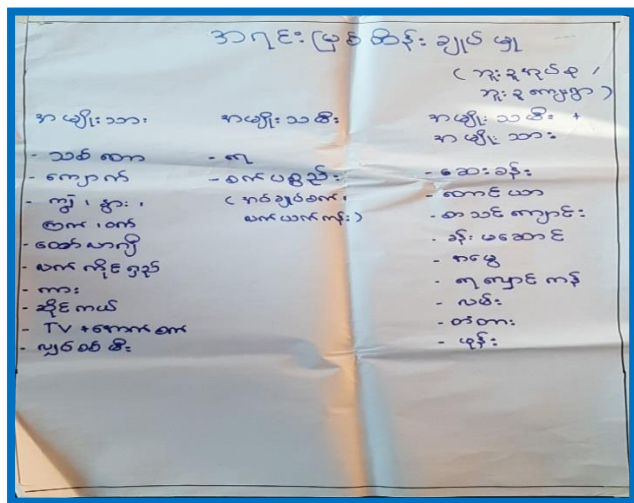 အရင်းမြစ်ထိန်းချုပ်မှု
(ဘူးခူအုပ်စု /
ဘူးခူကျေးရွာ)
အမျိုးသား
- သစ်တော
- ကျောက်
- ကျွဲ ၊ နွား ၊
ကြက် ၊ ဝက်
- ထော်လာဂျီ
- လက်ကိုင်
- ကား
- ဆိုင်ကယ်
- TV + အောက်စက်
- လျှပ်စစ်မီး
အမျိုးသမီး
- ရေ
- စက်ပစ္စည်း
(အပ်ချုပ်စက်၊
လက်ယက်ကန်း)
အမျိုးသမီး +
အမျိုးသား
- ဆေးခန်း
- တောင်ယာ
- စာသင်ကျောင်း
- ခန်းမဆောင်
- အမွေ
- ရေလှောင်ကန်
- လမ်း
- တံတား
- ဖုန်း